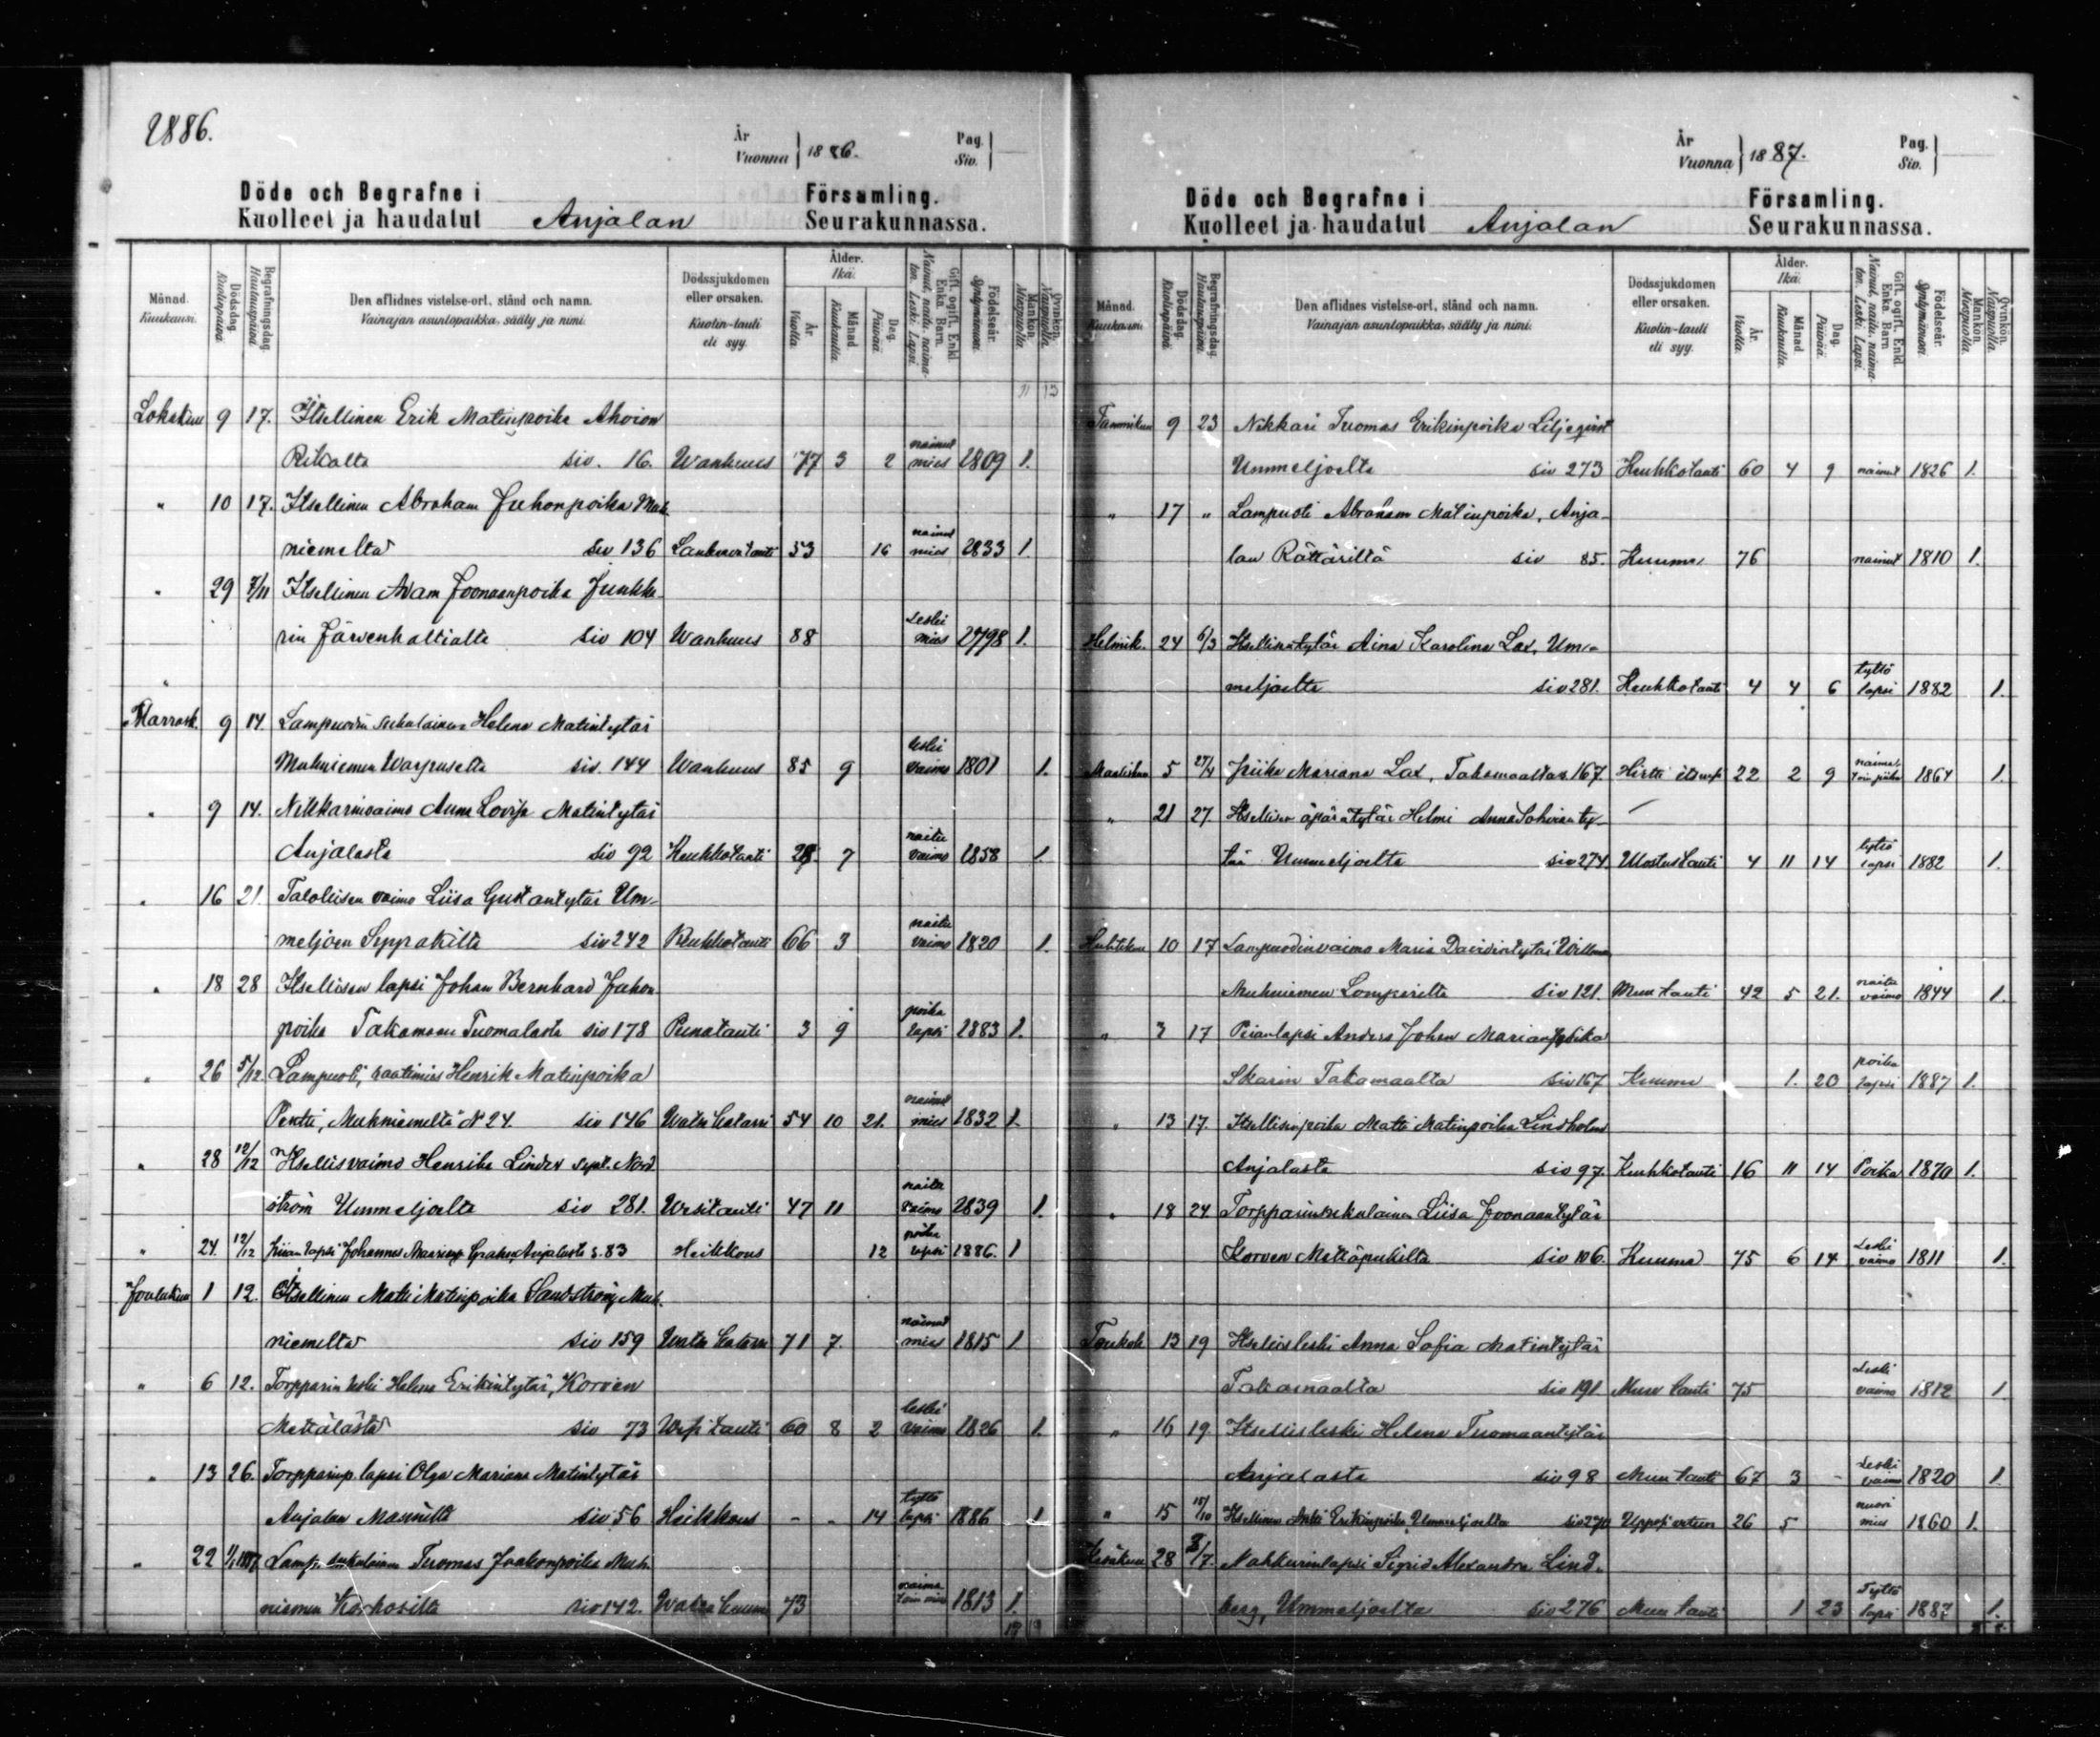 1886.
År
Vuonna 1886.
Pag.
Siv.
Döde och Begrafne i
Kuolleet ja haudatut Anjalan
Församling.
Seurakunnassa.
Månad. Kuukausi.
Dödsdag. Kuolinpäivä.
Begrafningsdag. Hautauspäivä.
Den aflidnes vistelse-ort, stånd och namn.
Vainajan asuntopaikka, sääty ja nimi.
Dödssjukdomen eller orsaken.
Kuolin-tauti eli syy.
Ålder. Ikä.
År. Vuotta.
Månad Kuukautta.
Dag. Päivää.
Gift, ogift, Enkl. Enka. Barn.
Nainut, naitu, naimaton. Leski. Lapsi.
Födelseår. Syntymävuosi.
Mankön. Miespuolia.
Qvinkön. Naispuolia.
11 13
Lokakuu 9 17. Itsellinen Erik Matinpoika Ahvion
siv. 16. Wanhuus 77 3 2 nainut mies 1809 1.
" 10 17. Itsellinen Abraham Juhonpoika Muh-
niemeltä siv 136 53 16 nainut mies 1833 1.
" 29 7/11 Itsellinen Adam Joonaanpoika Junkka-
rin Järvenhaltialta siv 104 Wanhuus 88 Leski mies 1798 1.
Marrask. 9 14. Lampuodin sukulainen Helena Matintytär
Muhniemen Warpuselta siv. 144 Wanhuus 85 9 leski vaimo 1801 1.
" 9 14. Nikkarinvaimo Anna Lovisa Matintytär
Anjalasta siv 92 Keuhkotauti 28 7 naitu vaimo 1858 1
" 16 21. Talollisen vaimo Liisa Gustantytär Um-
meljoen Seppäkiltä siv 242 Keuhkotauti 66 3 naitu vaimo 1820 1.
" 18 28 Itsellisen lapsi Johan Bernhard Juhon
poika Takamaan Tuomalasta siv 178 Punatauti 3 9 poika lapsi 1883 1.
" 26 5/12. Lampuoti, Henrik Matinpoika
Pentti, Muhniemeltä N 24. siv 146 Watsa Catarri 54 10 21. nainut mies 1832 1.
" 28 12/12 Itsellisvaimo Henrika Linder synt. Nord
ström Ummeljoelta siv 281. Wesitauti 47 11 naitu vaimo 1839 1.
" 24. 12/12 Johannes Anjalasta s. 83 Heikkous 12 poika lapsi 1886. 1
Joulukuu 1 12. Itsellinen Matti Matinpoika Sandström Muh-
niemeltä siv 159 Watsa Catarri 71 7. nainut mies 1815 1
" 6 12. Torpparin leski Helena Erikintytär, Korven
Mettälästä siv 73 Wesitauti 60 8 2 leski vaimo 1826 1.
" 13 26. Torpparinp. lapsi Olga Mariana Matintytär
Anjalan siv 56 Heikkous - - 14 tyttö lapsi 1886 1
" 22 Lamp. sukulainen Tuomas Jaakonpoika Muh-
niemen siv 142. 73 1813 1.
19
År
Vuonna 1887.
Pag.
Siv.
Döde och Begrafne i
Kuolleet ja haudatut Anjalan
Församling.
Seurakunnassa.
Månad. Kuukausi.
Dödsdag. Kuolinpäivä.
Begrafningsdag. Hautauspäivä.
Den aflidnes vistelse-ort, stånd och namn.
Vainajan asuntopaikka, sääty ja nimi.
Dödssjukdomen eller orsaken.
Kuolin-tauti eli syy.
Ålder. Ikä.
År. Vuotta.
Månad Kuukautta.
Dag. Päivää.
Gift, ogift, Enkl. Enka. Barn
Nainut, naitu, naimaton. Leski. Lapsi.
Födelseår. Syntymävuosi.
Mankön. Miespuolia.
Qvinkön. Naispuolia.
Tammikuu 9 23 Nikkari Tuomas Erikinpoika Liljeqvist
Ummeljoelta siv 273 Keuhkotauti 60 4 9 nainut 1826 1.
" 17 " Lampuoti Abraham Matinpoika, Anja-
lan Rättäriltä siv 85. Kuume 76 nainut 1810 1.
Helmik. 24 6/3 Itsellisentytär Aina Karolina Lax, Um-
meljoelta siv 281. Keuhkotauti 4 4 6 tyttö lapsi 1882 1.
Maaliskuu 5 27/4 Piika Mariana Lax, Takamaalta s. 167. 22 2 9 1864 1.
" 21 27. Itsellisen äpärätytär Helmi Anna ty-
tär Ummeljoelta siv 274. 4 11 14 tyttö lapsi 1882 1.
Huhtikuu 10 17 Lampuodinvaimo Maria Davidintytär
Muhniemen siv 121. Muu tauti 42 5 21. naitu vaimo 1844 1.
" 3 17 Piianlapsi Anders Johan Marianpoika
Skarin Takamaalta siv 167 Kuume 1. 20 poika lapsi 1887 1.
" 13 17. Itsellisenpoika Matti Matinpoika Lindholm
Anjalasta siv 97. Keuhkotauti 16 11 14 Poika 1870 1.
" 18 24 Torpparinsukulainen Liisa Joonaantytär
Korven siv 106. Kuume 75 6 14 Leski vaimo 1811 1.
Toukok 13 19 Itsellisleski Anna Sofia Matintytär
Takamaalta siv 191 Muu tauti 75 Leski vaimo 1812 1.
" 16 19 Itsellisleski Helena Tuomaantytär
Anjalasta siv 98 Muu tauti 67 3 - Leski vaimo 1820 1.
" 15 Itsellinen Antti Erikinpoika Ummeljoelta siv 270 Uppos veteen 26 5 nuori mies 1860 1.
Kesäkuu 28 Nahkurinlapsi Sigrid Alexandra Lind-
berg, Ummeljoelta siv 276 Muu tauti 1 23 Tyttö lapsi 1887 1.